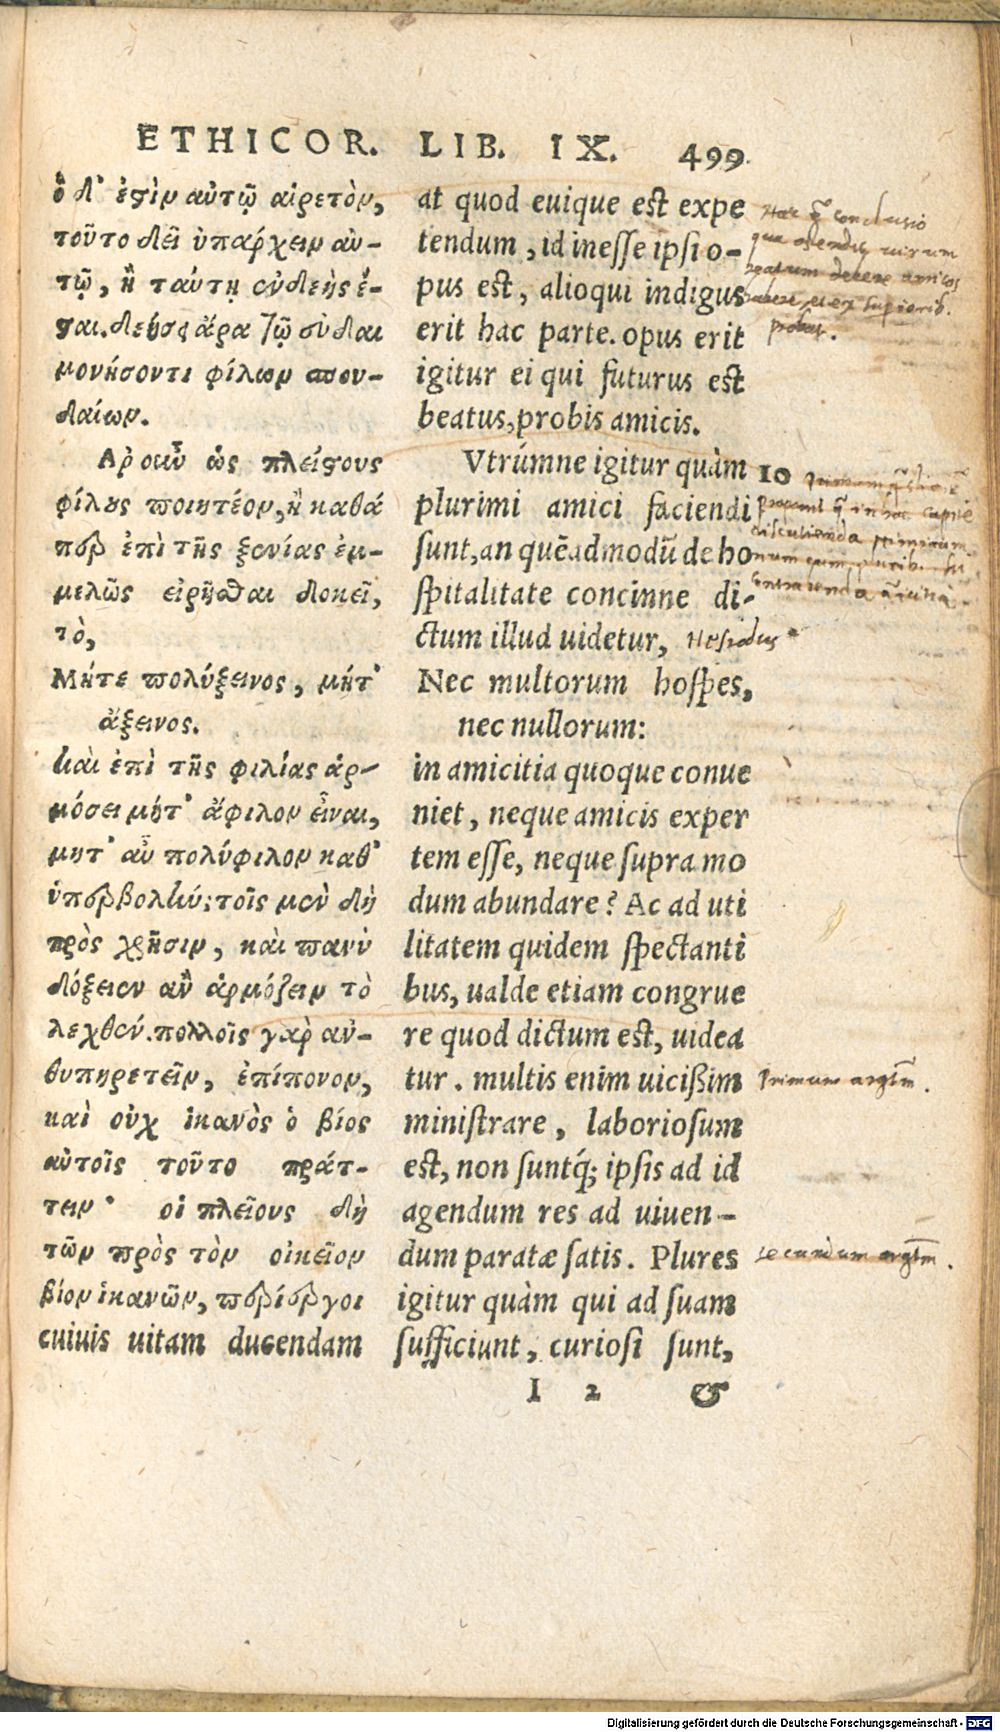 ETHICOR. LIB. IX. 499
ὃ δ᾽ ἐςὶν αὐτῷ αἱρετὸν,
τοῦτο δεῖ ὑπάρχειν αὐ-
τῷ, ἢ ταύτῃ ἐνδεὴς ἔ-
ςαι. δεήσει ἄρα τῷ εὐδαι
μονήσοντι φίλων σπου-
δαίων.
Αρ᾽ οὖν ὡς πλείςους
φίλους ποιητέον, ἢ καθά
περ ἐπὶ τῆς ξενίας ἐμ-
μελῶς εἰρῆσθαι δοκεῖ,
τὸ,
Μήτε πολύξεινος, μήτ᾽
ἄξεινος.
καὶ ἐπὶ τῆς φιλίας ἁρ-
μόσει μήτ᾽ ἄφιλον εἶναι,
μητ᾽ αὖ πολύφιλον καθ᾽
ὑπερβολήν; τοῖς μὲν δὴ
πρὸς χρῆσιν, καὶ πανὺ
δόξειεν ἂν ἁρμόζειν τὸ
λεχθέν. πολλοῖς γὰρ ἀν-
θυπηρετεῖν, ἐπίπονον,
καὶ οὐχ ἱκανὸς ὁ βίος
αὐτοῖς τοῦτο πράτ-
τειν· οἱ πλείους δὴ
τῶν πρὸς τὸν οἰκεῖον
βίον ἱκανῶν, περίεργοι
cuiuis uitam ducendam
at quod cuique est expe
tendum, id inesse ipsi o-
pus est, alioqui indigus
erit hac parte. opus erit
igitur ei qui futurus est
beatus, probis amicis.
Vtrúmne igitur quàm
plurimi amici faciendi
sunt, an quēadmodū de ho
spitalitate concinne di-
ctum illud uidetur,
Nec multorum hospes,
nec nullorum:
in amicitia quoque conue
niet, neque amicis exper
tem esse, neque supra mo
dum abundare? Ac ad uti
litatem quidem spectanti
bus, ualde etiam congrue
re quod dictum est, uidea
tur. multis enim uicißim
ministrare, laboriosum
est, non suntq́; ipsis ad id
agendum res ad uiuen-
dum paratæ satis. Plures
igitur quàm qui ad suam
sufficiunt, curiosi sunt,
I 2 &
conclusio
uirum
decere amicos
10
Hesiodus
primum argtm.
secundum argtm.
Digitalisierung gefördert durch die Deutsche Forschungsgemeinschaft - DFG